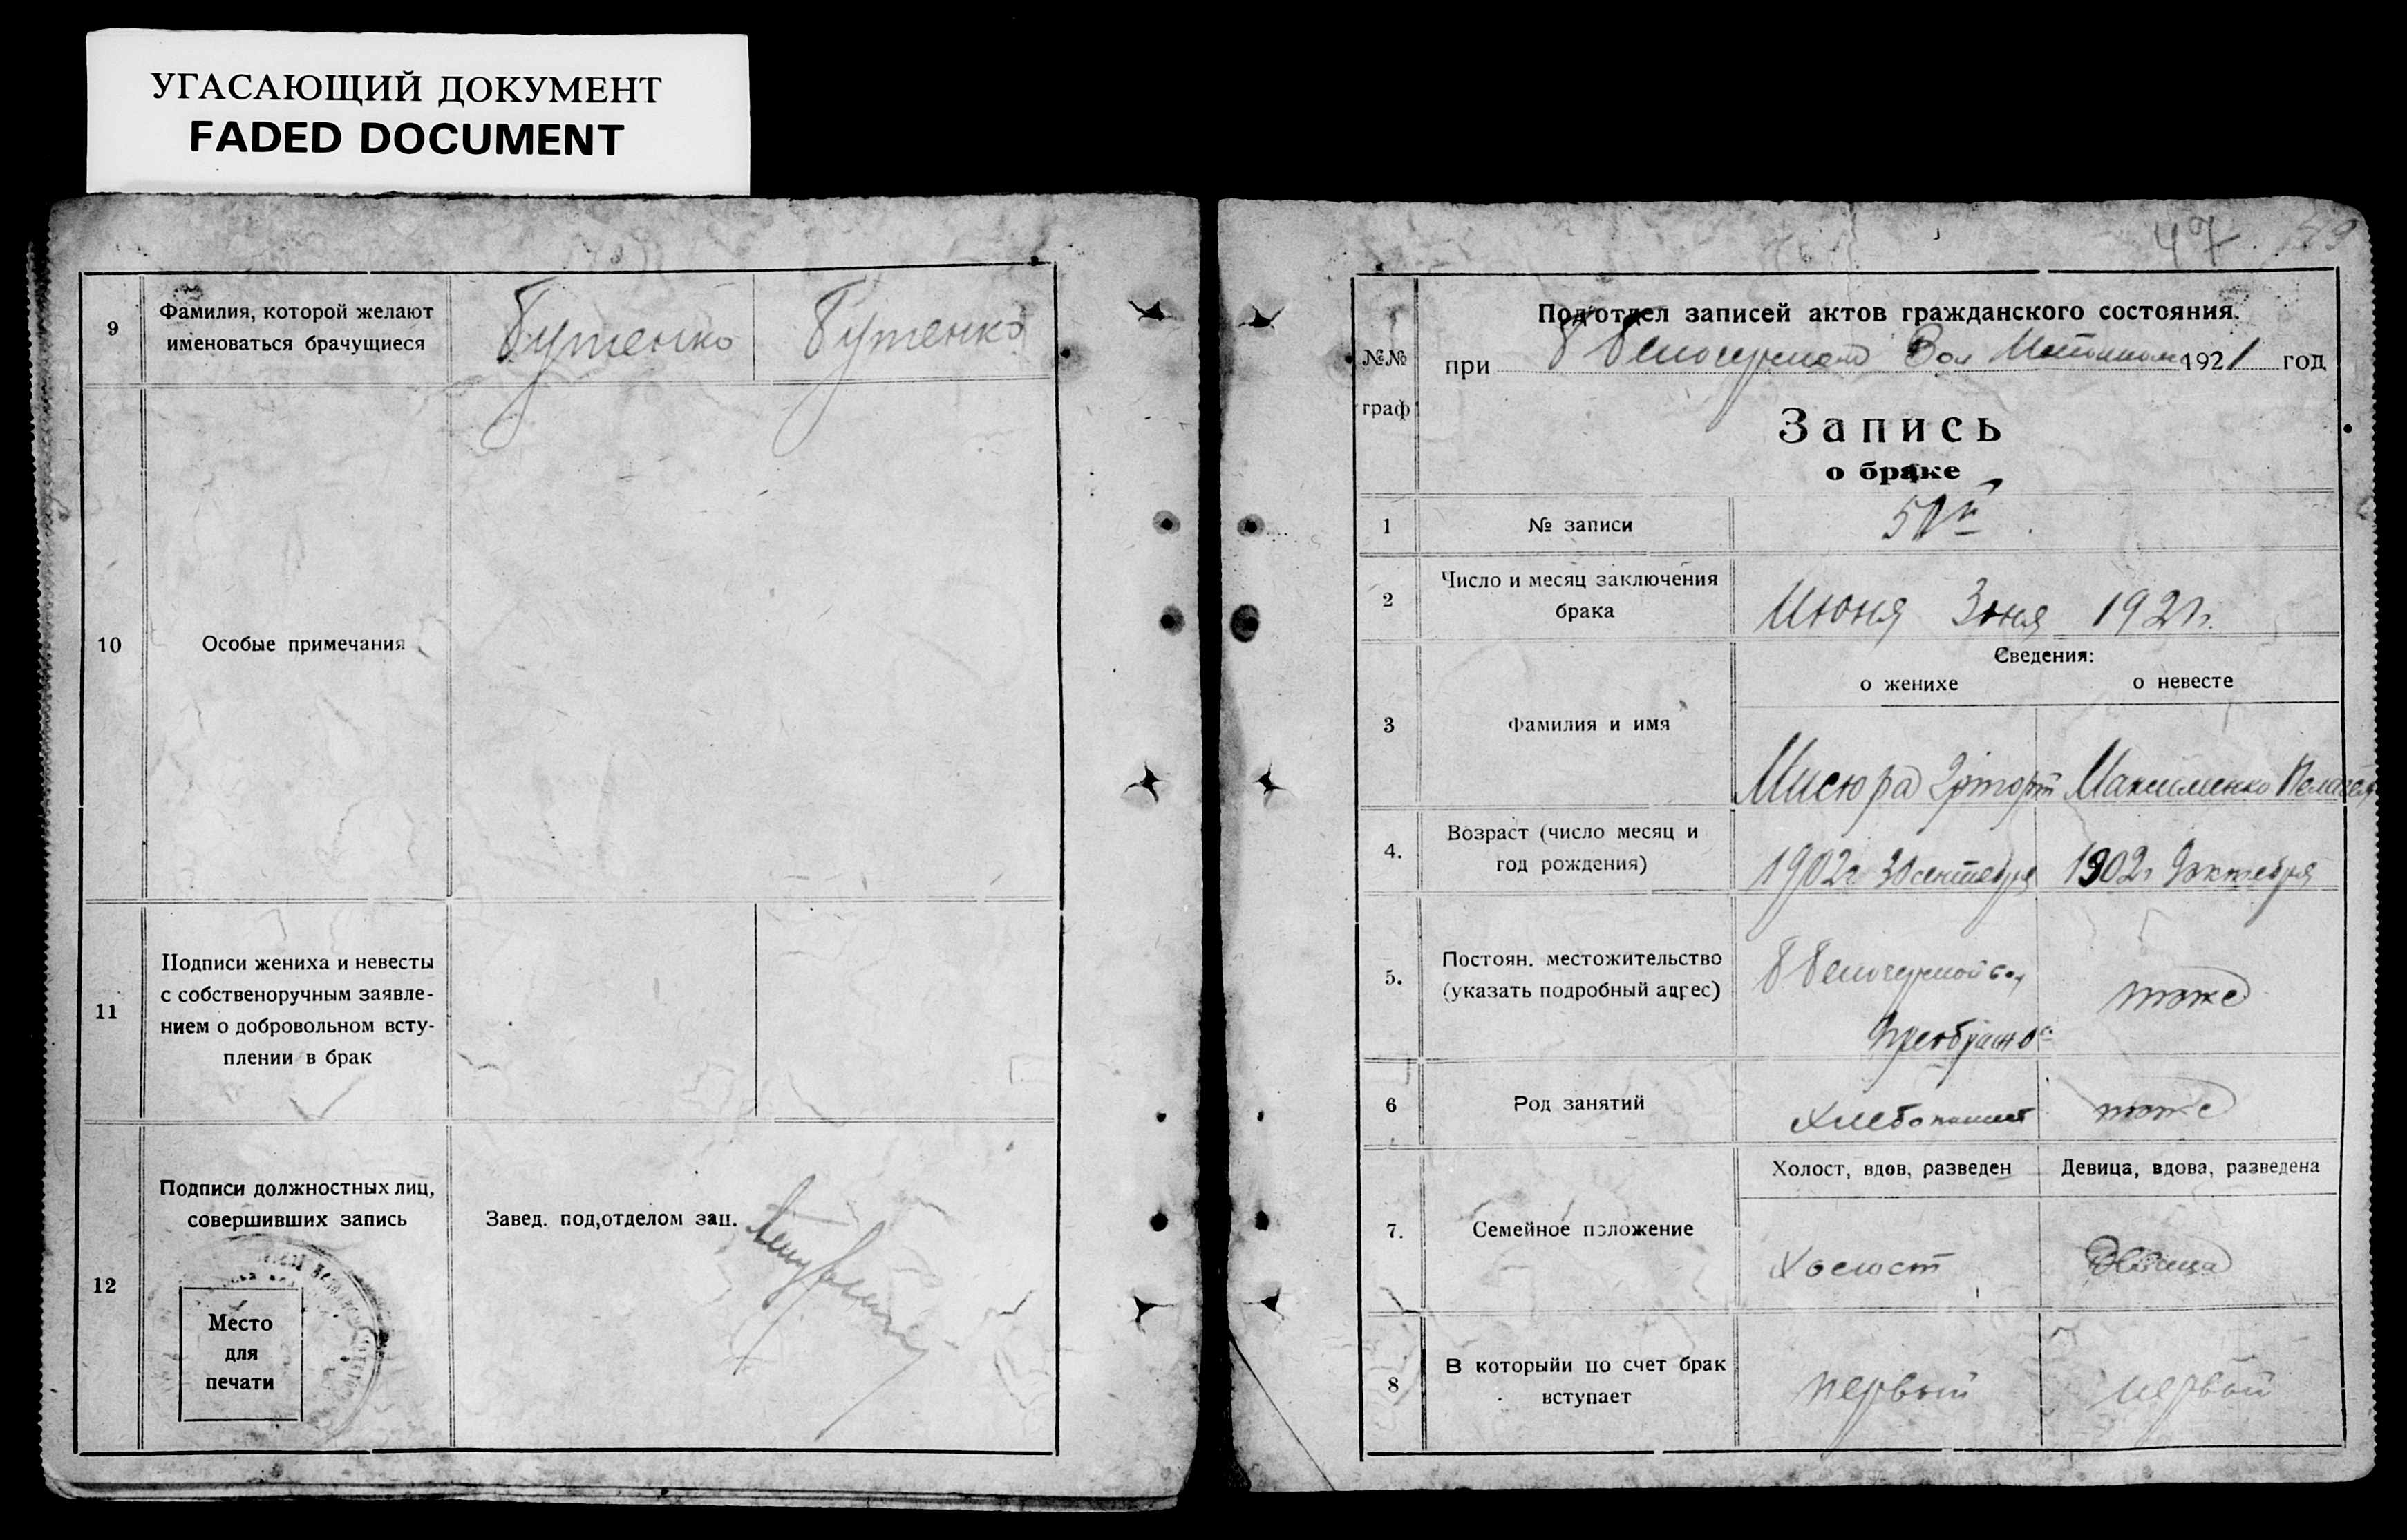 УГАСАЮЩИЙ ДОКУМЕНТ
FADED DOCUMENT
9
Фамилия, которой желают
именоваться брачущиеся
Бутенко
Бутенко
10
Особые примечания
11
Подписи жениха и невесты
с собственоручным заявле-
нием о добровольном всту-
плении в брак
12
Подписи должностных лиц,
совершивших запись
Завед. под,отделом зап.
Место
для
печати
47
№№
граф
Под'отдел записей актов гражданского состояния.
при Вол 1921 год
Запись
о браке
1
№ записи
2
Число и месяц заключения
брака
Июня 3дня 1921г.
Сведения:
о женихе
о невесте
3
Фамилия и имя
Мисюра
Максименко Пелагея
4.
Возраст (число месяц и
год рождения)
1902г 30 сентебря
1902г 9 октебря
5.
Постоян. местожительство
(указать подробный адрес)
тоже
6
Род занятий
Хлебопашец
тоже
Холост, вдов, разведен
Девица, вдова, разведена
7.
Семейное положение
Холост
Девица
8
В которыйи по счет брак
вступает
первый
первый